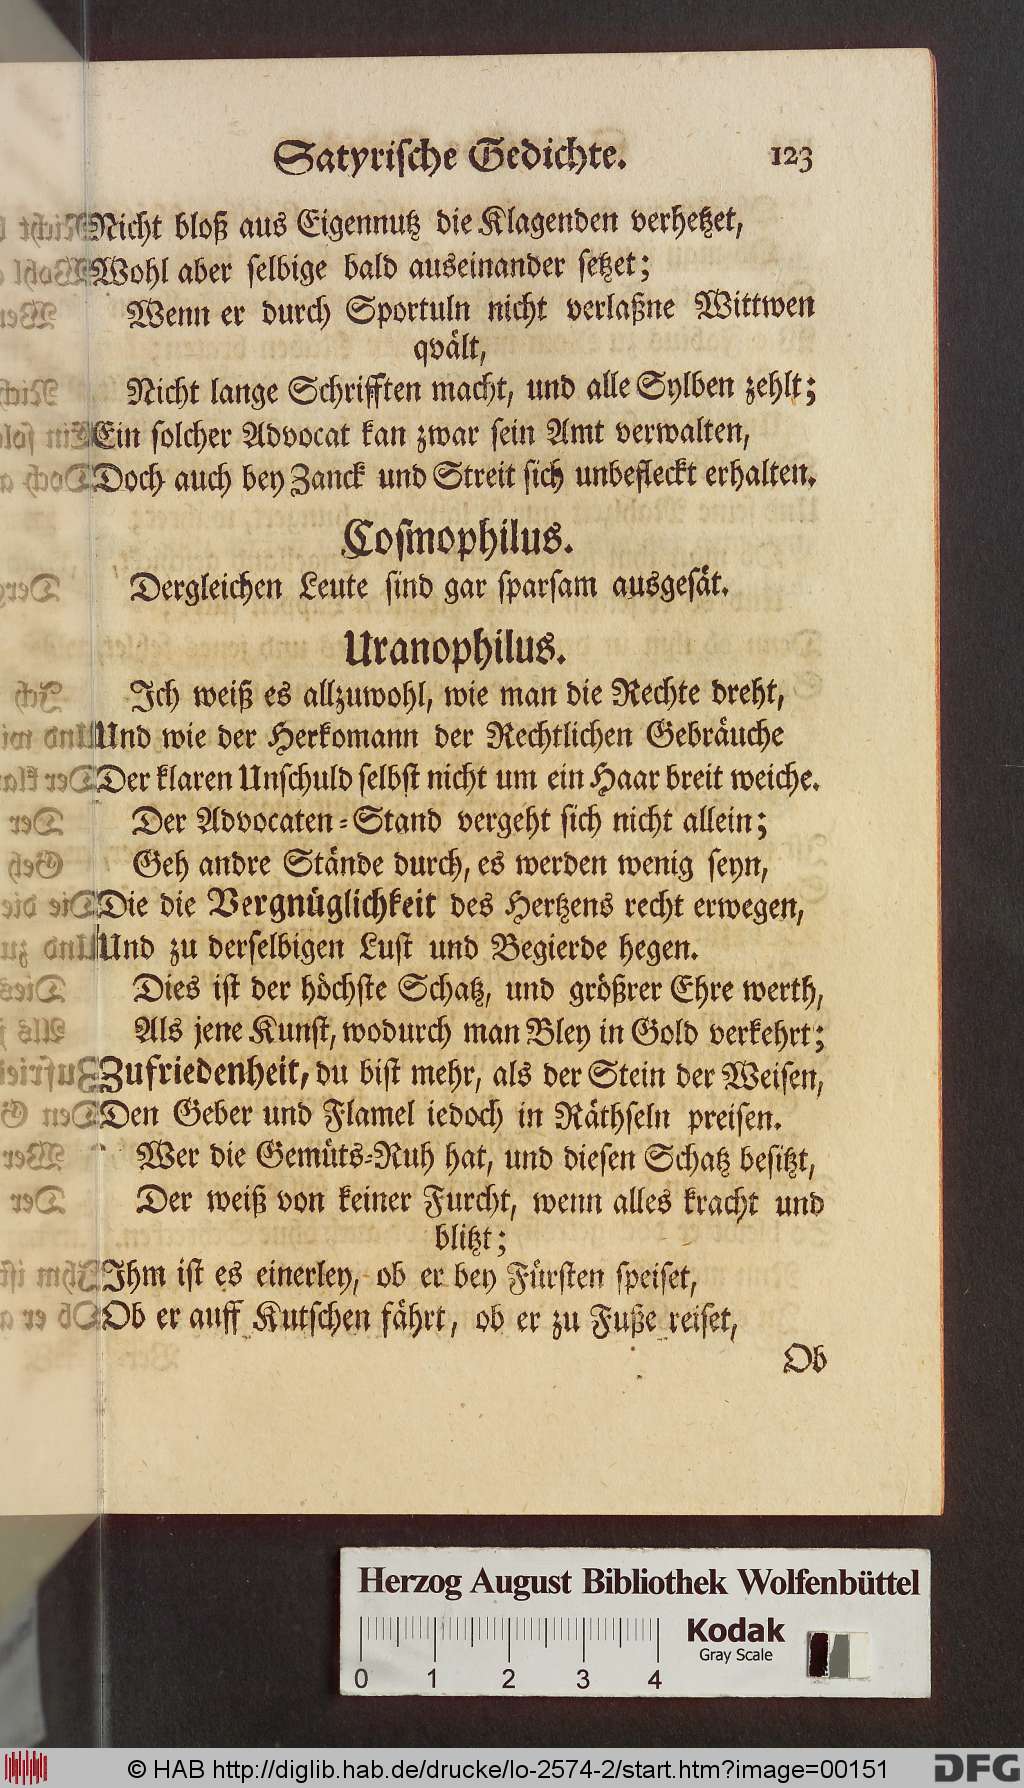 Satyrische Gedichte. 123
Nicht bloß aus Eigennutz die Klagenden verhetzet,
Wohl aber selbige bald auseinander setzet;
Wenn er durch Sportuln nicht verlaßne Wittwen
qvält,
Nicht lange Schrifften macht, und alle Sylben zehlt;
Ein solcher Advocat kan zwar sein Amt verwalten,
Doch auch bey Zanck und Streit sich unbefleckt erhalten.
Cosmophilus.
Dergleichen Leute sind gar sparsam ausgesät.
Uranophilus.
Ich weiß es allzuwohl, wie man die Rechte dreht,
Und wie der Herkomann der Rechtlichen Gebräuche
Der klaren Unschuld selbst nicht um ein Haar breit weiche.
Der Advocaten-Stand vergeht sich nicht allein;
Geh andre Stände durch, es werden wenig seyn,
Die die Vergnüglichkeit des Hertzens recht erwegen,
Und zu derselbigen Lust und Begierde hegen.
Dies ist der höchste Schatz, und größrer Ehre werth,
Als jene Kunst, wodurch man Bley in Gold verkehrt;
Zufriedenheit, du bist mehr, als der Stein der Weisen,
Den Geber und Flamel iedoch in Räthseln preisen.
Wer die Gemüts-Ruh hat, und diesen Schatz besitzt,
Der weiß von keiner Furcht, wenn alles kracht und
blitzt;
Ihm ist es einerley, ob er bey Fürsten speiset,
Ob er auff Kutschen fährt, ob er zu Fuße reiset,
Ob
Herzog August Bibliothek Wolfenbüttel
Kodak
Gray Scale
0 1 2 3 4
© HAB http://diglib.hab.de/drucke/lo-2574-2/start.htm?image=00151
DFG